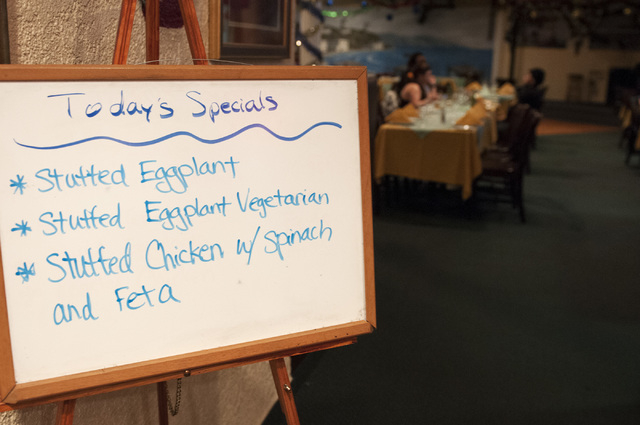 Today's Specials
* Stuffed Eggplant
* Stuffed Eggplant Vegetarian
* Stuffed Chicken w/ Spinach
and Feta